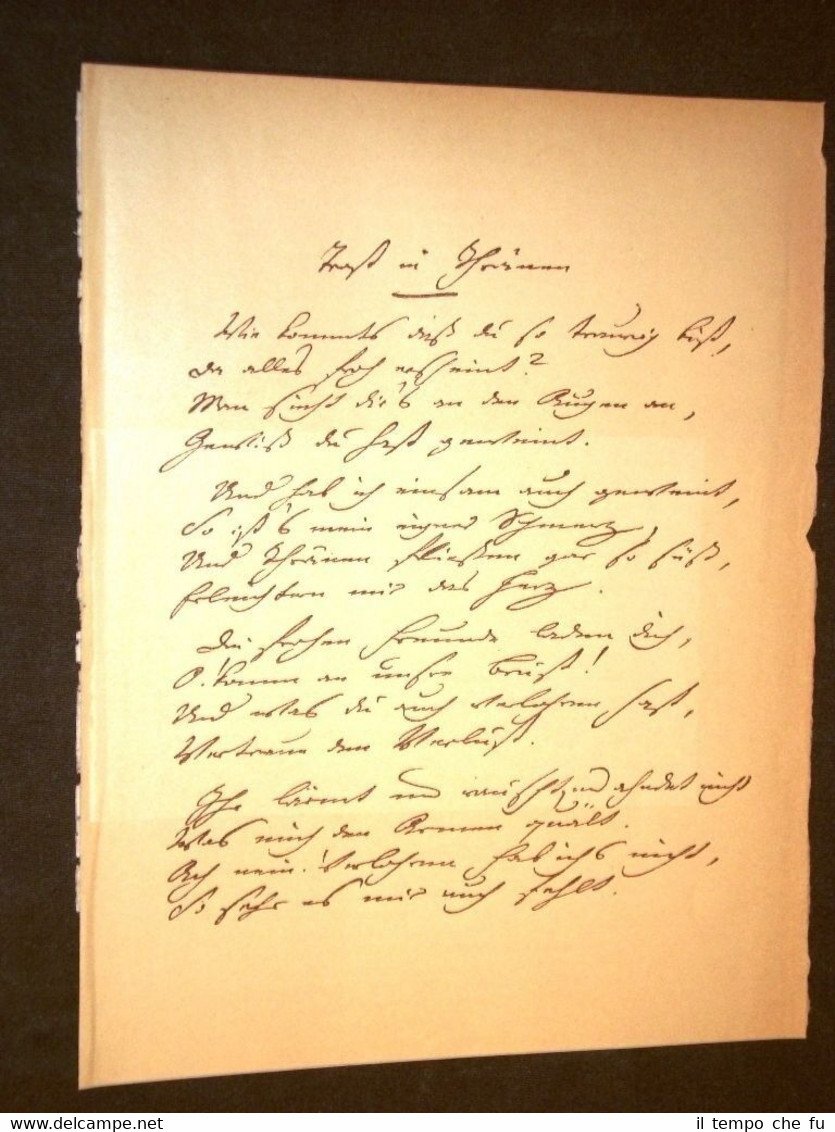 Trost in Thränen
Wie kommts daß du so traurig bist,
da alles froh erscheint?
Man sieht dir's an den Augen an,
Gewiß du hast geweint.
Und hab ich einsam auch geweint,
So ist's mein eigner Schmerz,
Und Thränen fließen gar so süß,
Erleichtern mir das Herz.
Die frohen Freunde laden dich,
O! komm an unsre Brust!
Und was du auch verlohren hast,
Vertraue den Verlust.
Ihr lärmt und rauscht und ahndet nicht
Was mich den Armen quält.
Ach nein! Verlohren hab ichs nicht,
So sehr es mir auch fehlt.
www.delcampe.net
il tempo che fu